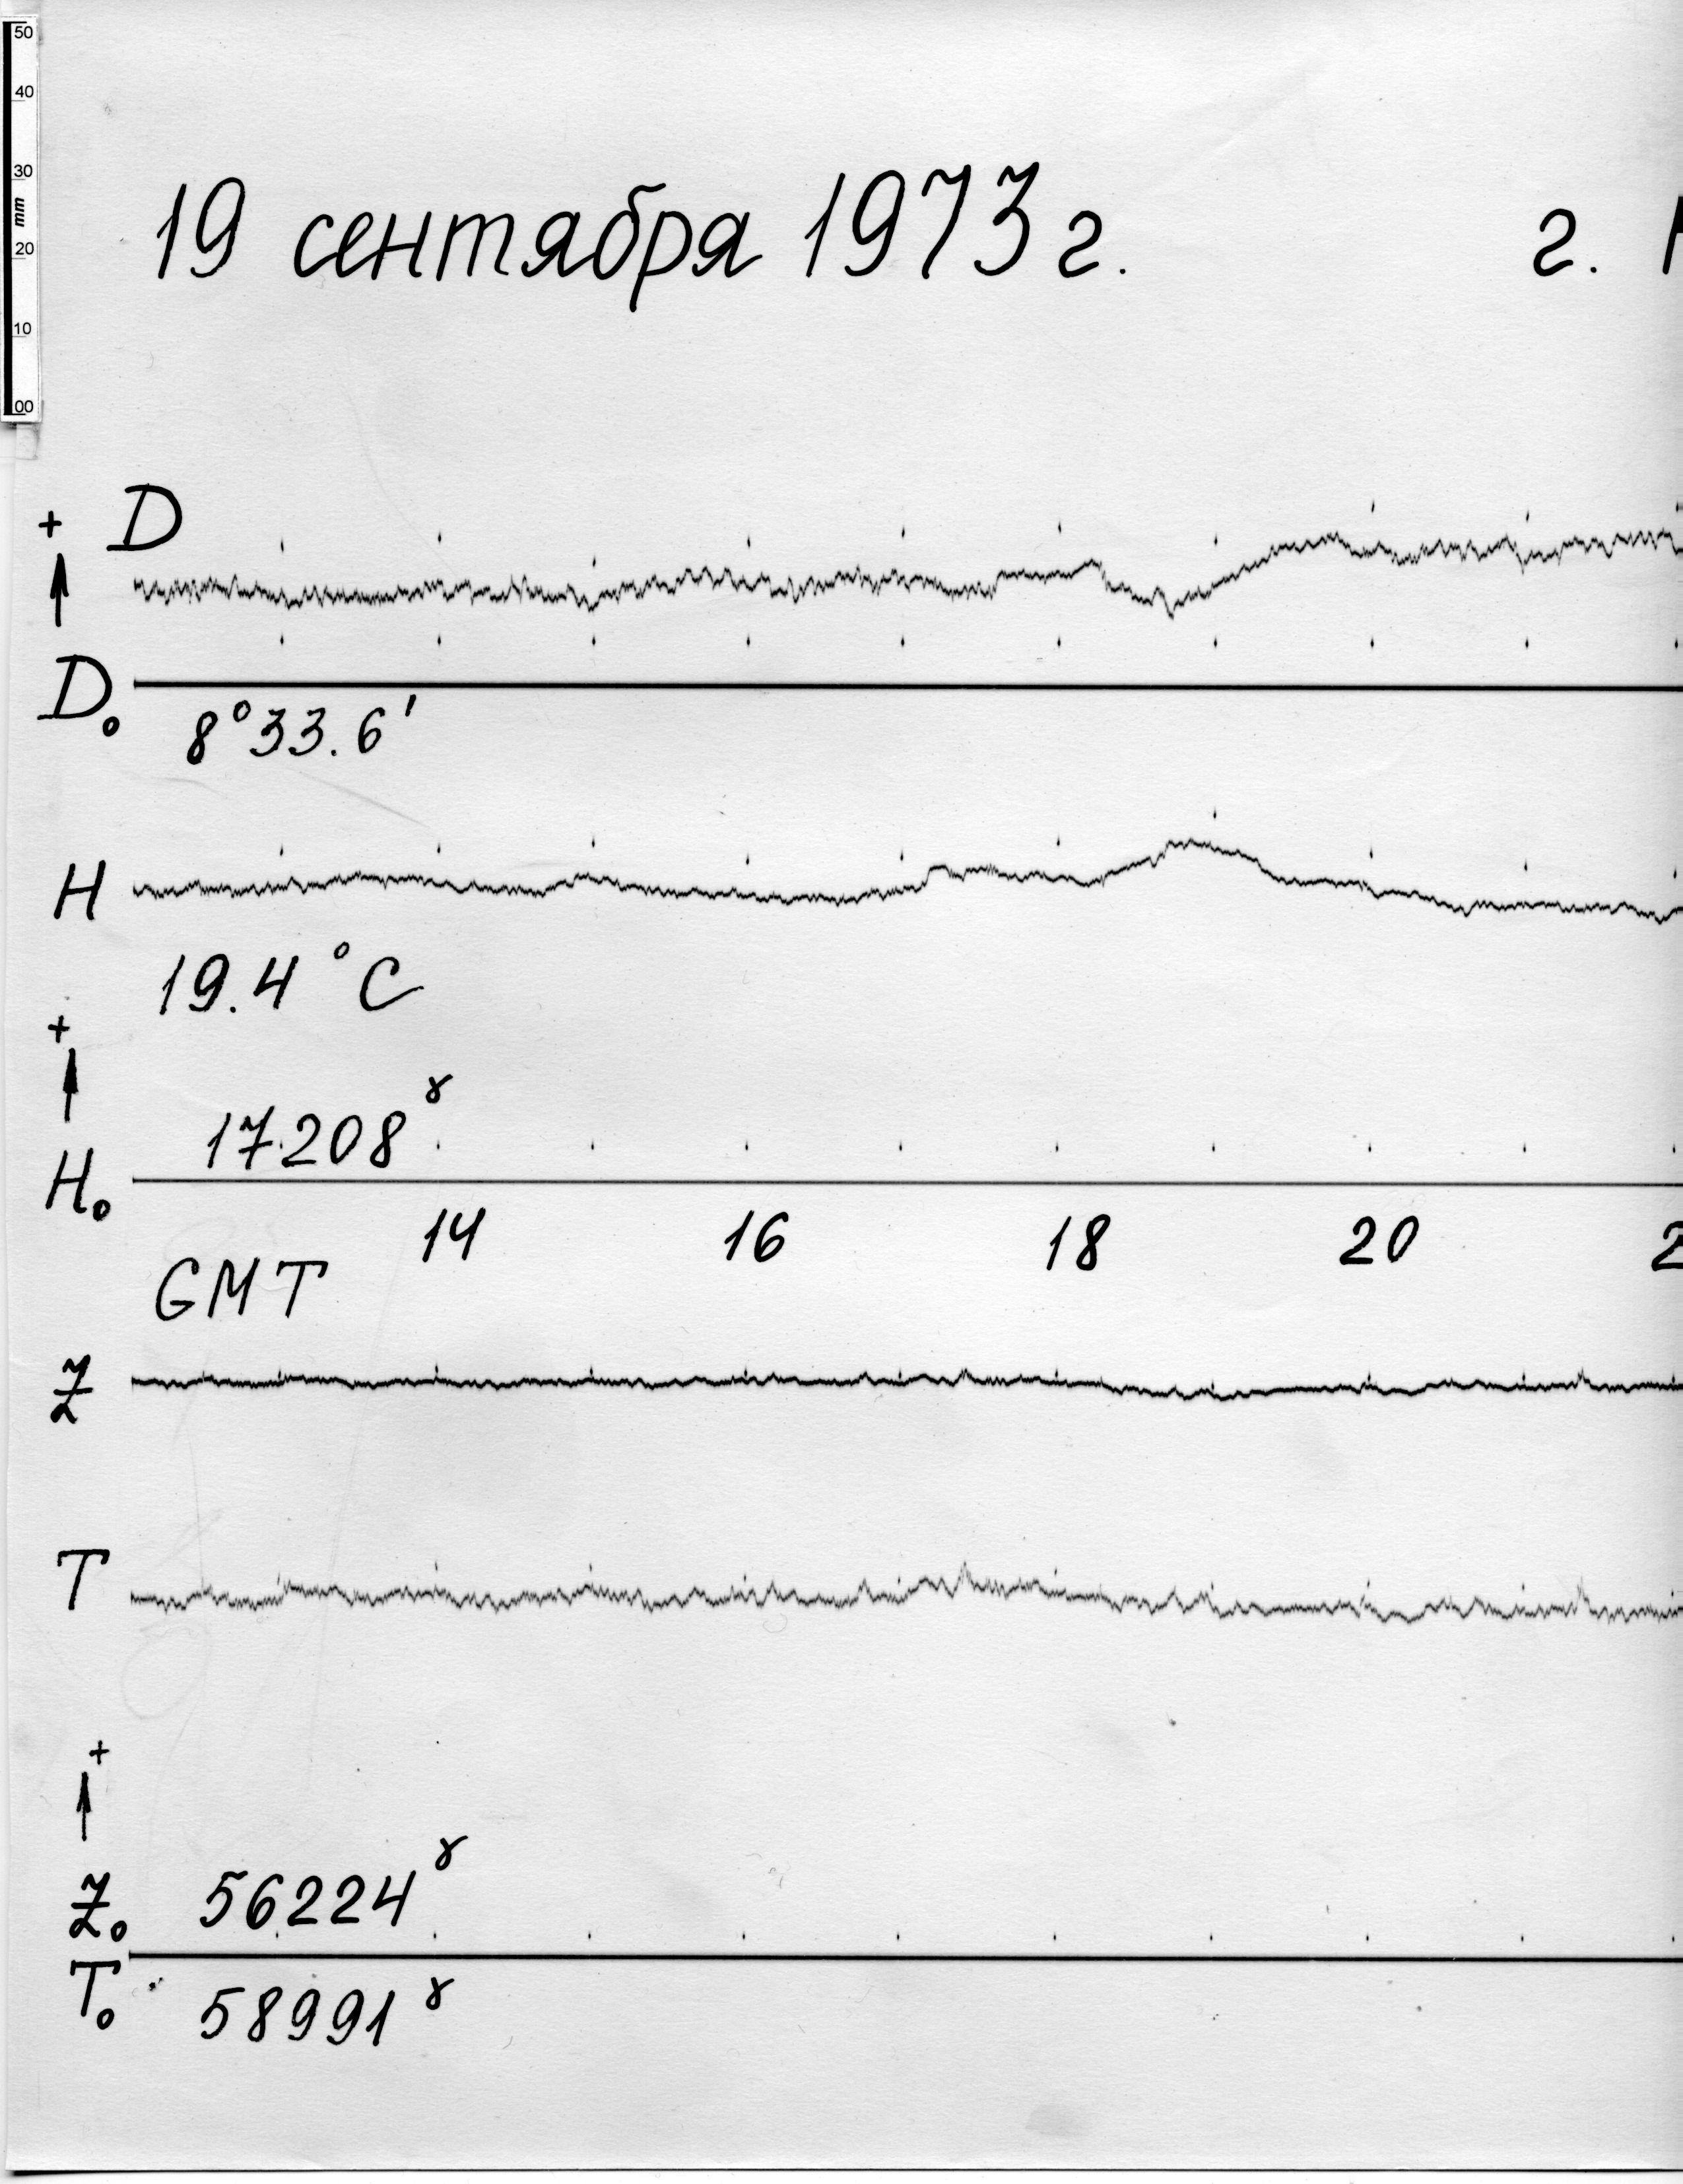 50
40
30
mm
20
10
00
19 сентября 1973 г. г.
+ D
D₀
8°33.6'
H
19.4 °C
+
17208 ɣ
H₀
14 16 18 20
GMT
Z
T
+
Z₀ 56224 ɣ
T₀ 58991 ɣ